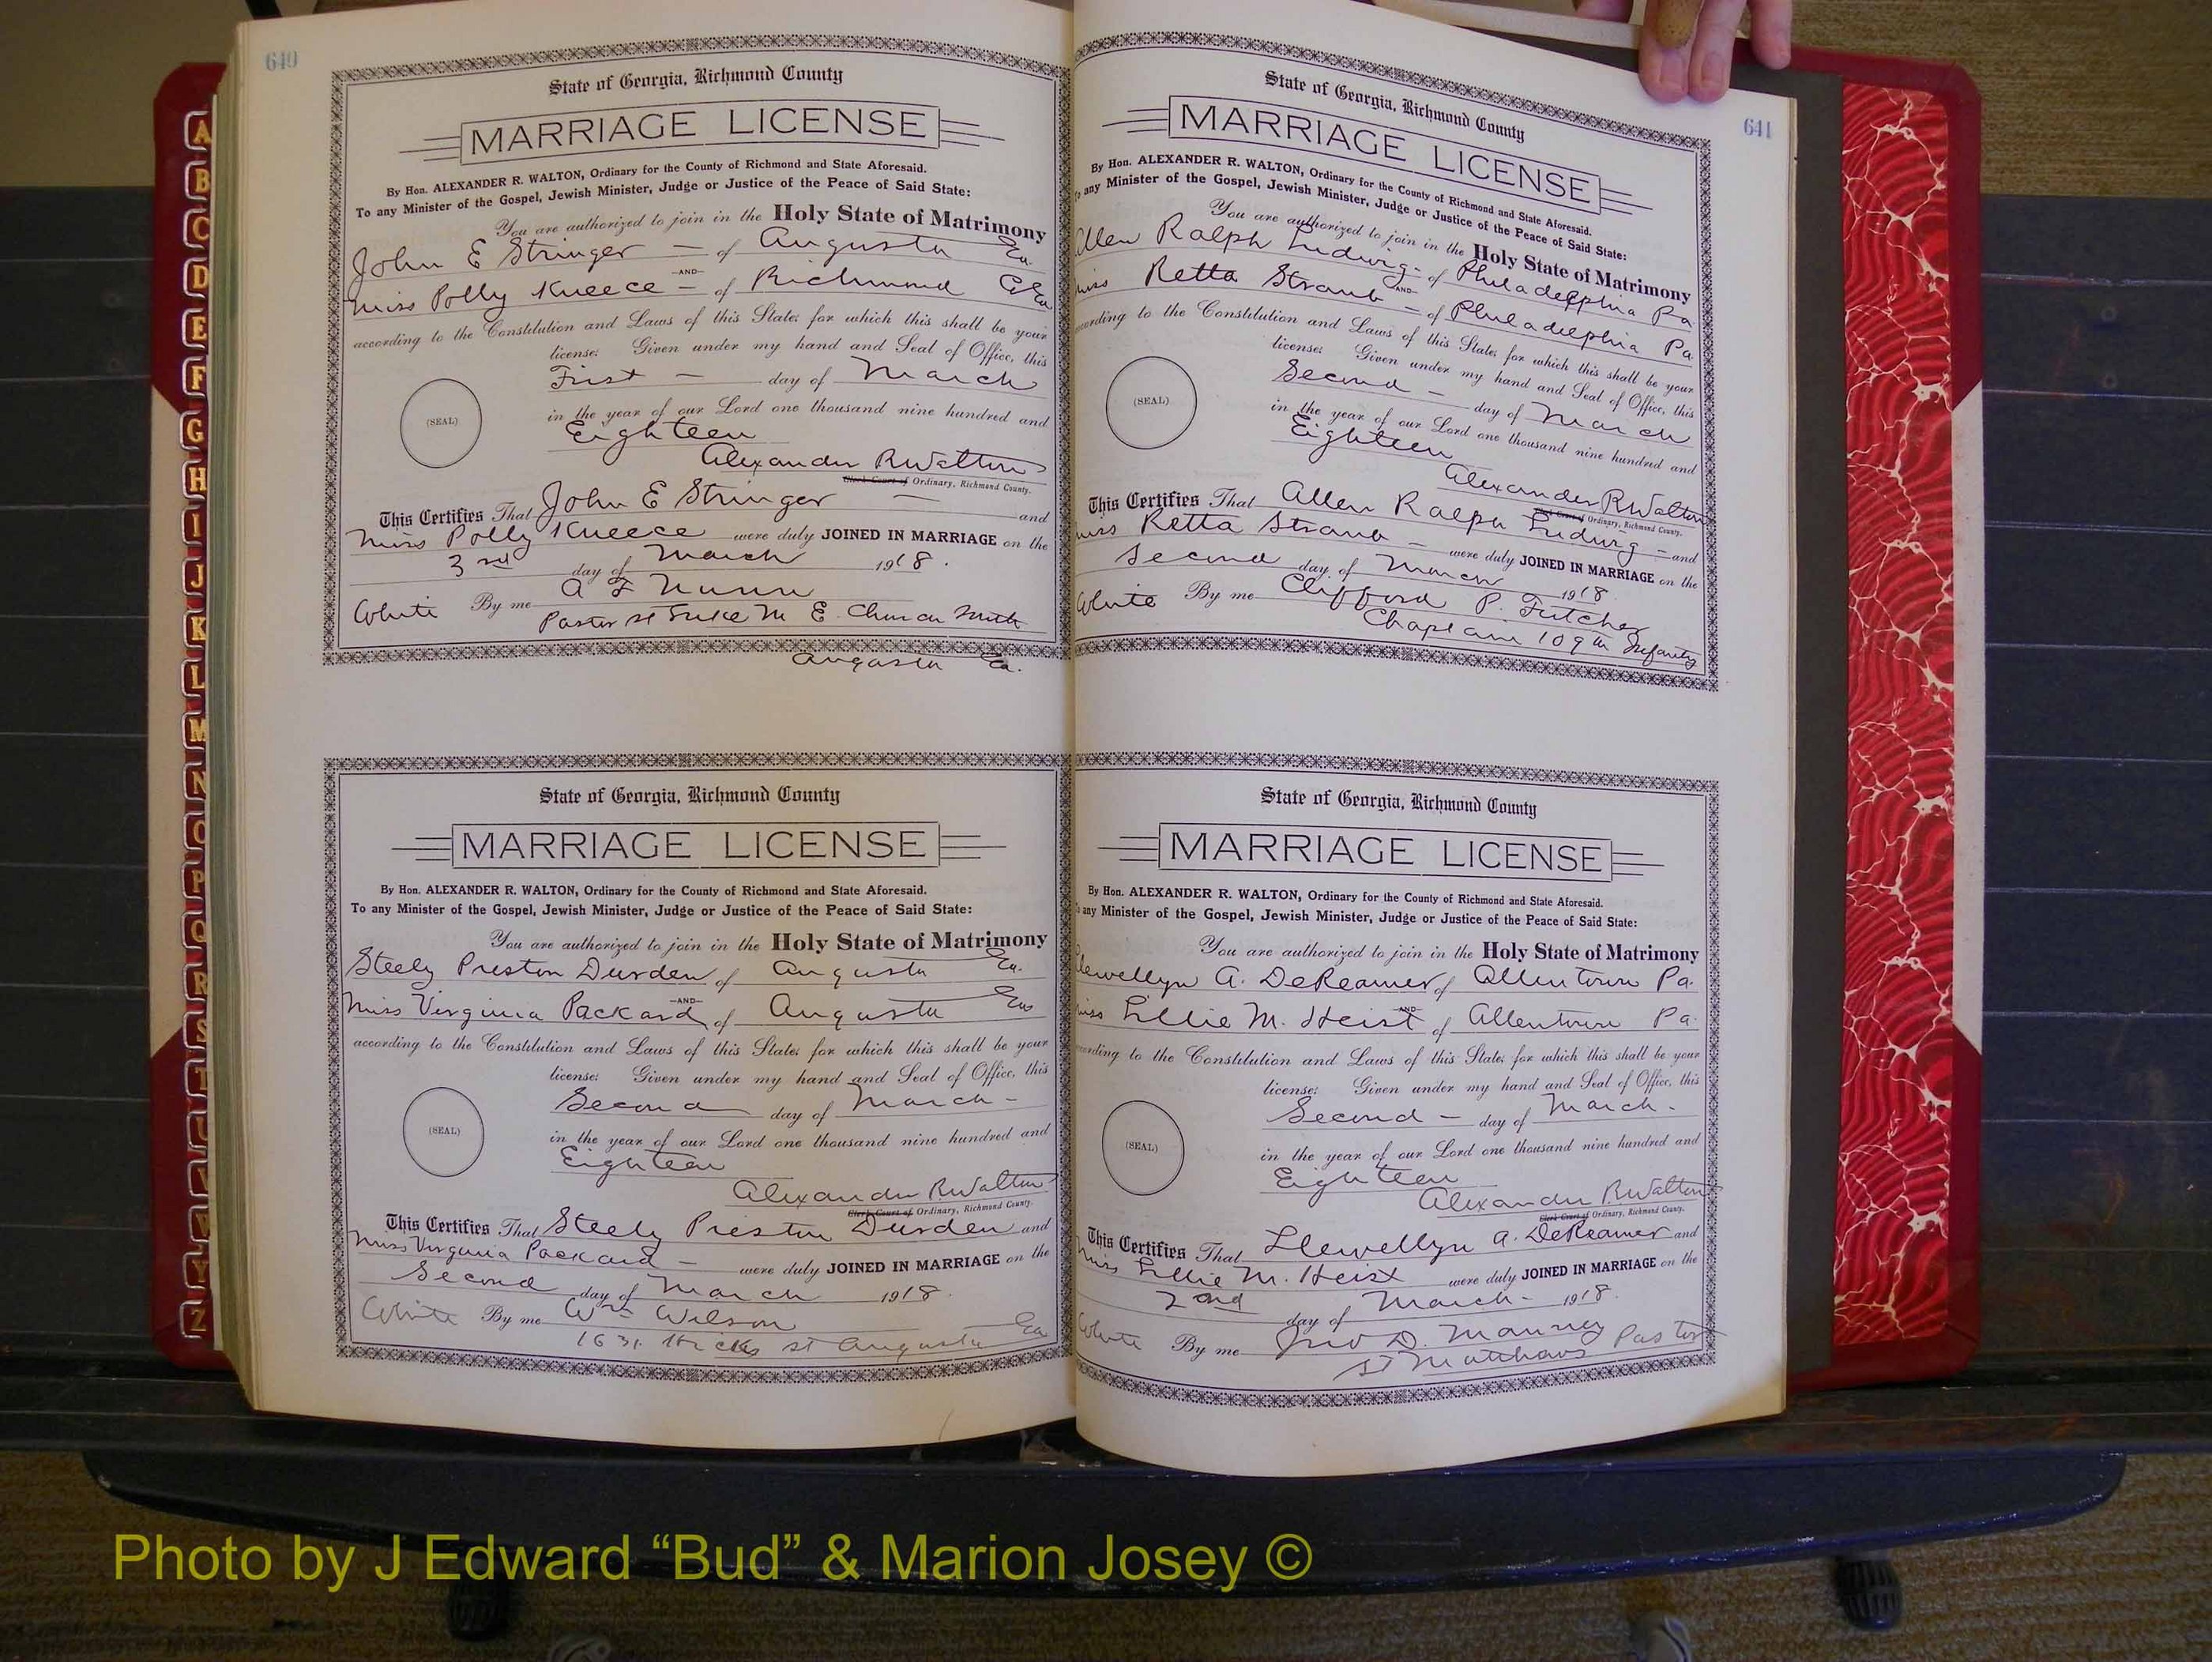 640
State of Georgia, Richmond County
MARRIAGE LICENSE
By Hon. ALEXANDER R. WALTON, Ordinary for the County of Richmond and State Aforesaid.
To any Minister of the Gospel, Jewish Minister, Judge or Justice of the Peace of Said State:
You are authorized to join in the Holy State of Matrimony
John E Stringer — of Augusta Ga.
—AND—
Miss Polly Kneece — of Richmond Co Ga
according to the Constitution and Laws of this State; for which this shall be your
license: Given under my hand and Seal of Office, this
First — day of March
(SEAL)
in the year of our Lord one thousand nine hundred and
Eighteen
Alexander R Walton
Clerk Court of Ordinary, Richmond County.
This Certifies That John E Stringer — and
Miss Polly Kneece were duly JOINED IN MARRIAGE on the
3rd day of March 1918.
White By me A F Nunn
Pastor St Luke M E Church South
Augusta Ga.
State of Georgia, Richmond County
MARRIAGE LICENSE
By Hon. ALEXANDER R. WALTON, Ordinary for the County of Richmond and State Aforesaid.
To any Minister of the Gospel, Jewish Minister, Judge or Justice of the Peace of Said State:
You are authorized to join in the Holy State of Matrimony
Steely Preston Durden of Augusta Ga.
—AND—
Miss Virginia Packard of Augusta Ga
according to the Constitution and Laws of this State; for which this shall be your
license: Given under my hand and Seal of Office, this
Second day of March -
(SEAL)
in the year of our Lord one thousand nine hundred and
Eighteen
Alexander R Walton
Clerk Court of Ordinary, Richmond County.
This Certifies That Steely Preston Durden and
Miss Virginia Packard — were duly JOINED IN MARRIAGE on the
Second day of March 1918.
White By me Wm Wilson
1631 Hicks st Augusta Ga
641
State of Georgia, Richmond County
MARRIAGE LICENSE
By Hon. ALEXANDER R. WALTON, Ordinary for the County of Richmond and State Aforesaid.
To any Minister of the Gospel, Jewish Minister, Judge or Justice of the Peace of Said State:
You are authorized to join in the Holy State of Matrimony
Allen Ralph Ludwig - of Philadelphia Pa
AND—
Miss Retta Straub — of Philadelphia Pa.
according to the Constitution and Laws of this State; for which this shall be your
license: Given under my hand and Seal of Office, this
Second — day of March
(SEAL)
in the year of our Lord one thousand nine hundred and
Eighteen
Alexander R Walton
Clerk Court of Ordinary, Richmond County.
This Certifies That Allen Ralph Ludwig — and
Miss Retta Straub — were duly JOINED IN MARRIAGE on the
Second day of March 1918.
White By me Clifford P. Futcher
Chaplain 109th Infantry
State of Georgia, Richmond County
MARRIAGE LICENSE
By Hon. ALEXANDER R. WALTON, Ordinary for the County of Richmond and State Aforesaid.
To any Minister of the Gospel, Jewish Minister, Judge or Justice of the Peace of Said State:
You are authorized to join in the Holy State of Matrimony
Llewellyn A. DeReamer of Allentown Pa.
AND
Miss Lillie M. Heist of Allentown Pa.
according to the Constitution and Laws of this State; for which this shall be your
license: Given under my hand and Seal of Office, this
Second — day of March.
(SEAL)
in the year of our Lord one thousand nine hundred and
Eighteen
Alexander R Walton
Clerk Court of Ordinary, Richmond County.
This Certifies That Llewellyn A. DeReamer and
Miss Lillie M. Heist were duly JOINED IN MARRIAGE on the
2nd day of March - 1918.
White By me Jno D. Mauney Pastor
St Matthews
A
B
C
D
E
F
G
H
I
J
K
L
M
N
O
P
Q
R
S
T
U
V
W
Y
Z
Photo by J Edward “Bud” & Marion Josey ©